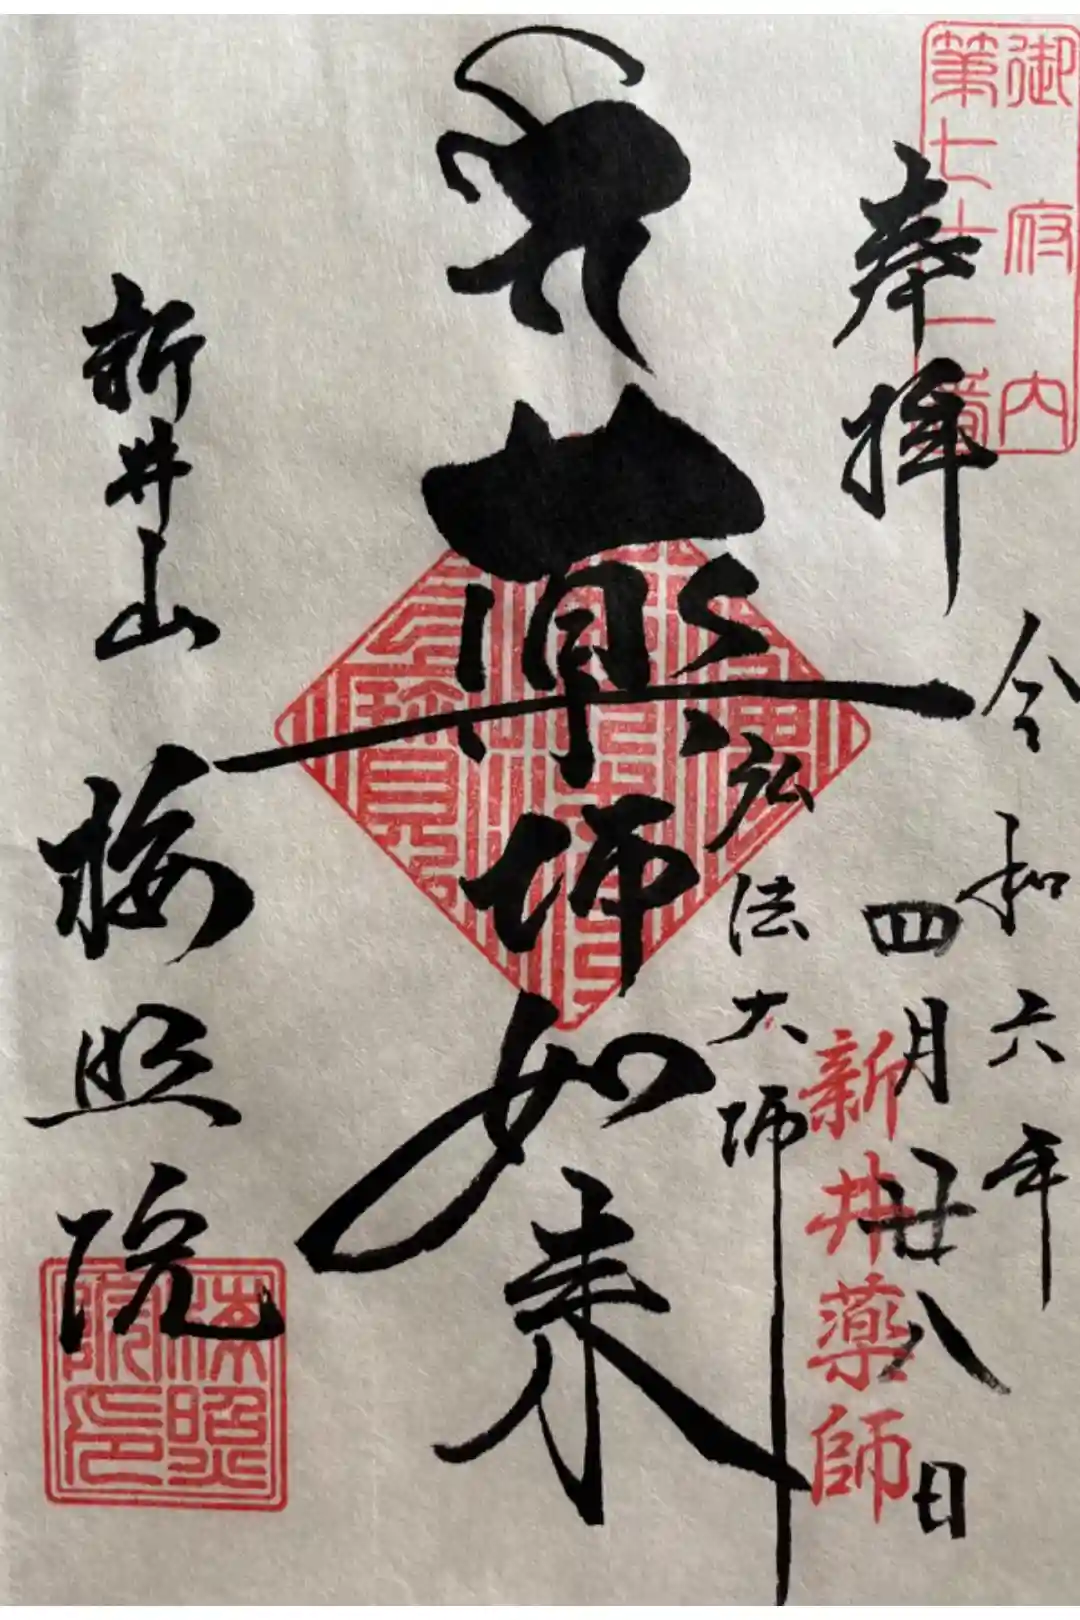 御府内
第七十一番
奉拝
令和六年
四月廿八日
新井薬師
弘法大師
薬師如来
新井山
梅照院
梅照院印